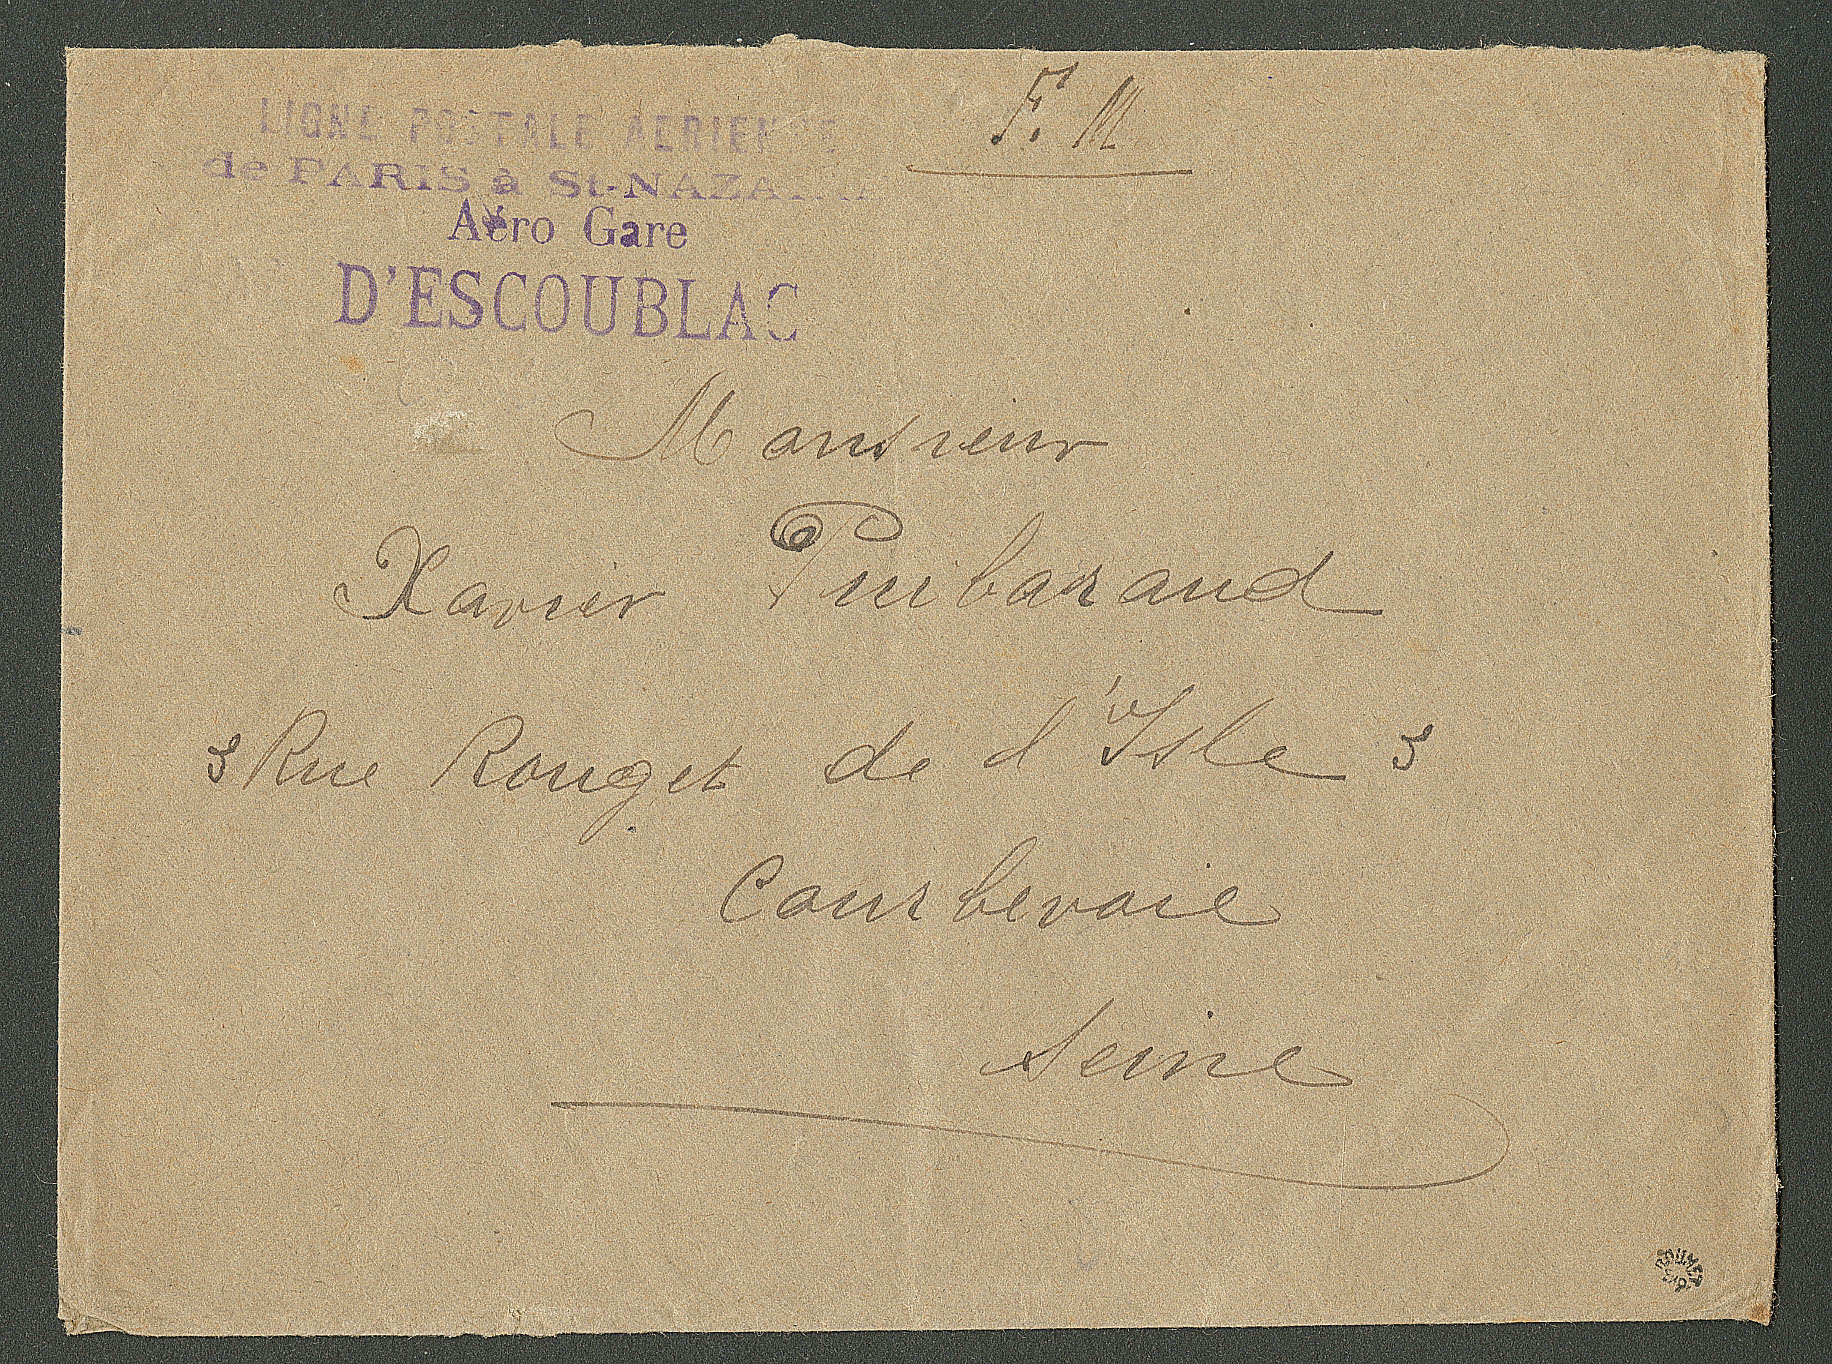 LIGNE POSTALE AERIENNE
F. M.
de PARIS à St-NAZA
Aéro Gare
D'ESCOUBLAC
Monsieur
Xavier Puibaraud
3 Rue Rouget de l'Isle 3
Courbevoie
Seine
ROUMET